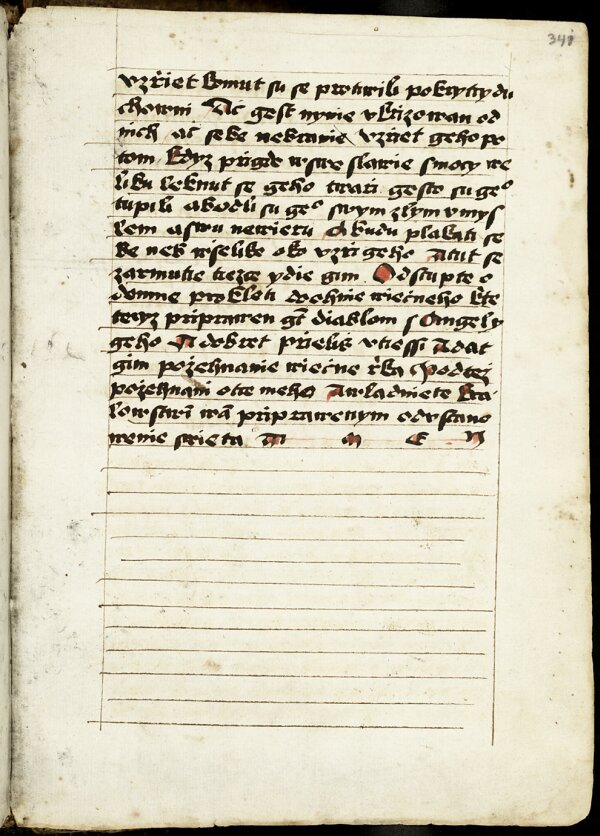 341
vzrziet komut su se protiwili pokrytcy du
chowni Ac gest nynie vkrizowan od
nich ac sebe nebranie vzriet geho po
tom kdyz prigde wswe slawie smocy we
liku leknut se geho twari gesto su geo
tupili a bodli su geo swym zlym vmys
lem a swu newieru A budu plakati se
be neb wselike oko vzri geho A tut se
zarmutie trzce ydie gim Odstupte o
demne prokleti do ohnie wiecneho kte
teryz priprawen gt diablom s Angely
geho A dobre prielis vtiessi A dat
gim pozehnanie wiecne rka Podtez
pozehnani otce meho A wladniete kra
lowstwi wam priprawenym od vstano
wenie swieta A M E N